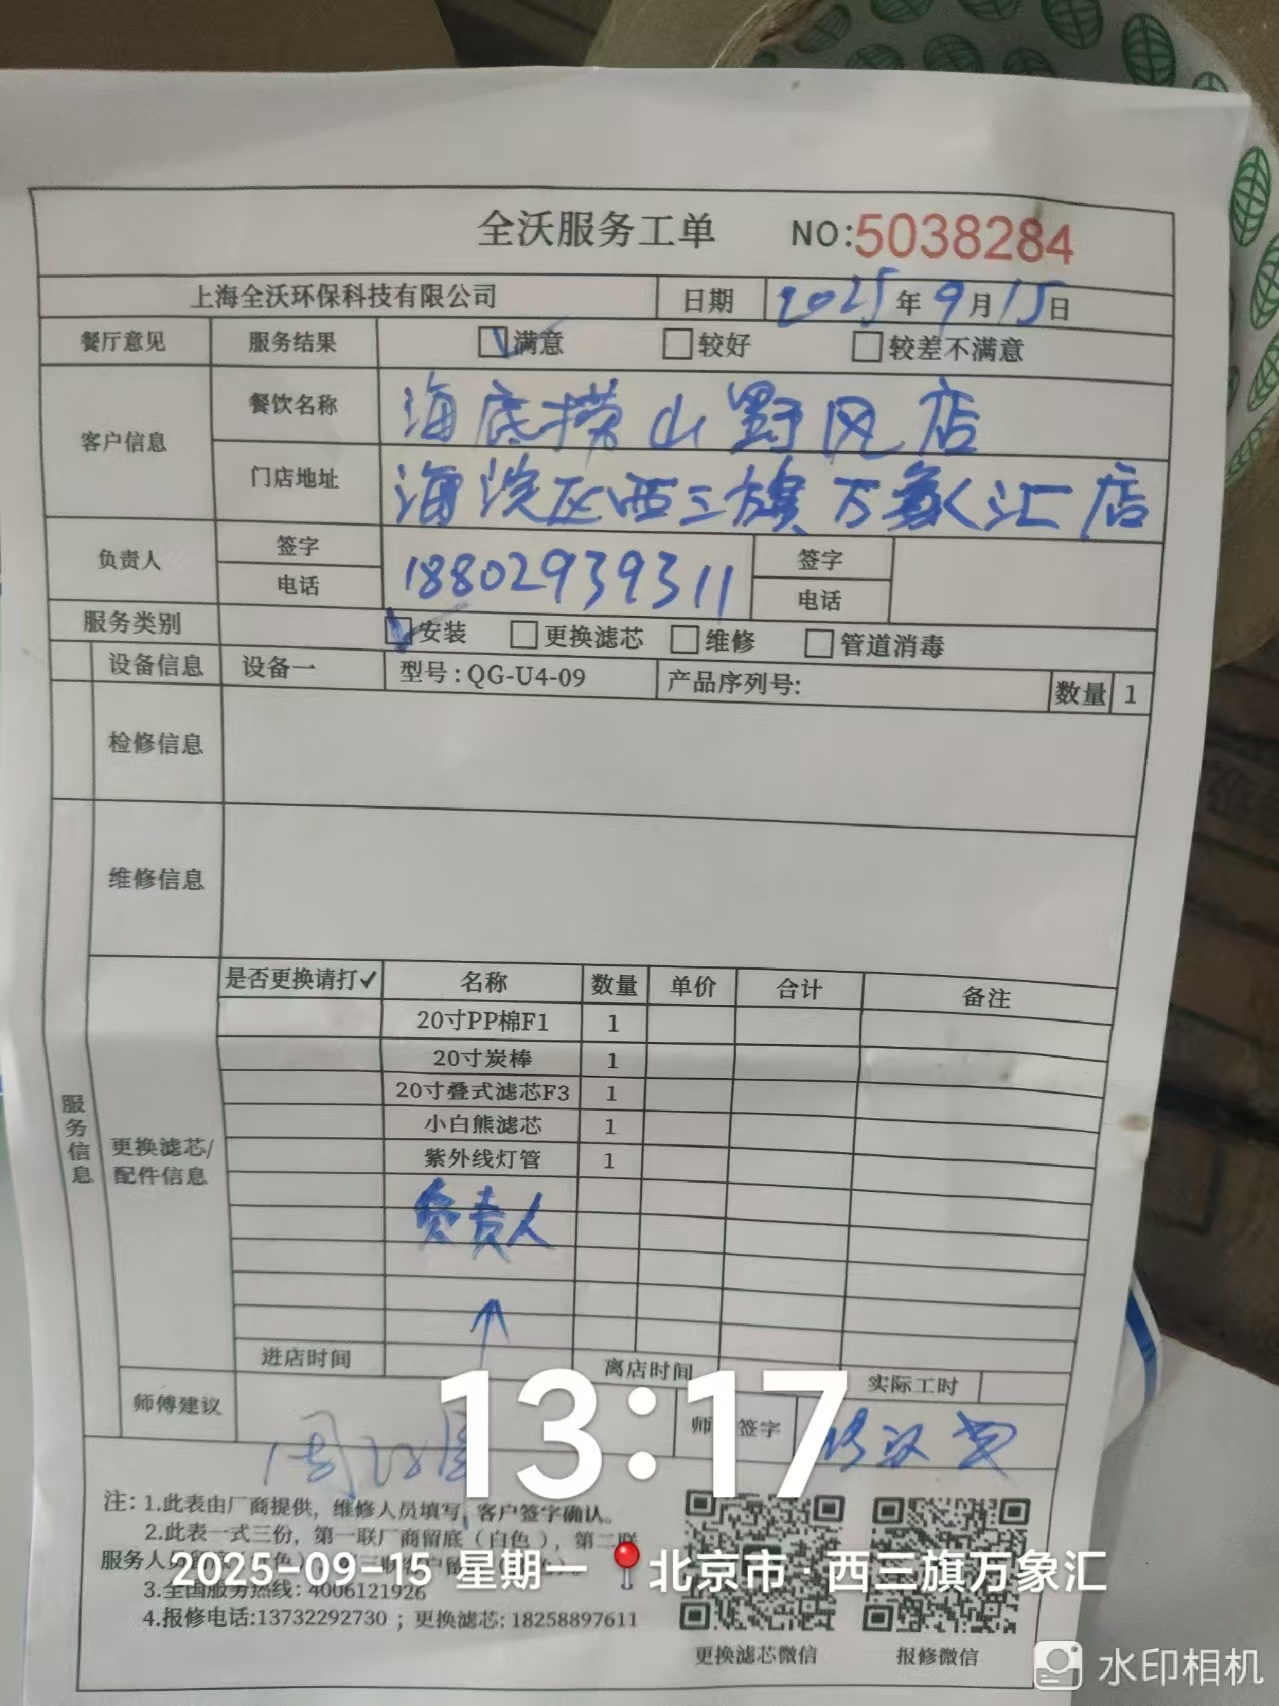 全沃服务工单 NO:5038284
上海全沃环保科技有限公司 日期 2025年9月15日
餐厅意见 服务结果 满意 较好 较差不满意
客户信息 餐饮名称 海底捞山野风店
门店地址 海淀区西三旗万象汇店
负责人 签字 签字
电话 18802939311 电话
服务类别 安装 更换滤芯 维修 管道消毒
设备信息 设备一 型号:QG-U4-09 产品序列号: 数量 1
检修信息
维修信息
服务信息
更换滤芯/配件信息
是否更换请打✓ 名称 数量 单价 合计 备注
20寸PP棉F1 1
20寸炭棒 1
20寸叠式滤芯F3 1
小白熊滤芯 1
紫外线灯管 1
负责人
↑
进店时间 离店时间 实际工时
师傅建议 师 签字
13:17
注: 1.此表由厂商提供，维修人员填写，客户签字确认。
2.此表一式三份，第一联厂商留底（白色），第二联
服务人
2025-09-15 星期一 北京市·西三旗万象汇
3.全国服务热线: 4006121926
4.报修电话:13732292730 ；更换滤芯: 18258897611
更换滤芯微信 报修微信
水印相机